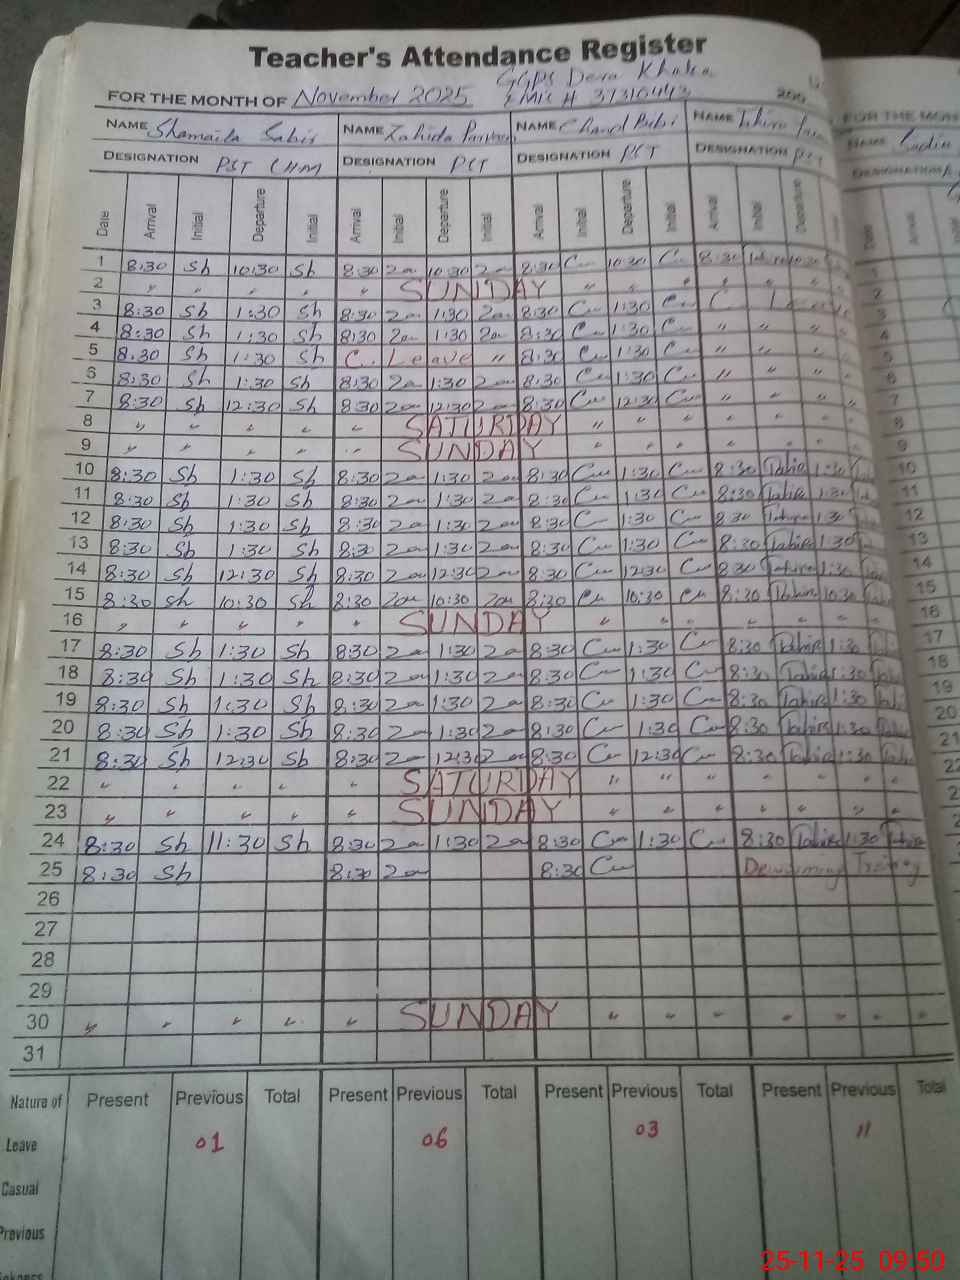 Teacher's Attendance Register
GGPS Dera Khalsa
FOR THE MONTH OF November 2025 EMIS # 37310443 200
NAME Shamaila Sabir NAME Zahida Parveen NAME Chand Bibi NAME
DESIGNATION PST CHM DESIGNATION PST DESIGNATION PST DESIGNATION PST
Date Arrival Initial Departure Initial Arrival Initial Departure Initial Arrival Initial Departure Initial Arrival Initial Departure
1 8:30 Sh 10:30 Sh 8:30 Za 10:30 Za 8:30 Cu 10:30 Cu 8:30
2 " " " " " SUNDAY " " " " " " "
3 8:30 Sh 1:30 Sh 8:30 Za 1:30 Za 8:30 Cu 1:30 Cu C Leave
4 8:30 Sh 1:30 Sh 8:30 Za 1:30 Za 8:30 Cu 1:30 Cu " " " "
5 8:30 Sh 1:30 Sh C. Leave " 8:30 Cu 1:30 Cu " " " "
6 8:30 Sh 1:30 Sh 8:30 Za 1:30 Za 8:30 Cu 1:30 Cu " " " "
7 8:30 Sh 12:30 Sh 8:30 Za 12:30 Za 8:30 Cu 12:30 Cu " " " "
8 " " " " " SATURDAY " " " " " " "
9 " " " " " SUNDAY " " " " " " "
10 8:30 Sh 1:30 Sh 8:30 Za 1:30 Za 8:30 Cu 1:30 Cu 8:30 Tahira 1:30
11 8:30 Sh 1:30 Sh 8:30 Za 1:30 Za 8:30 Cu 1:30 Cu 8:30 Tahira 1:30
12 8:30 Sh 1:30 Sh 8:30 Za 1:30 Za 8:30 Cu 1:30 Cu 8:30 Tahira 1:30
13 8:30 Sh 1:30 Sh 8:30 Za 1:30 Za 8:30 Cu 1:30 Cu 8:30 Tahira 1:30
14 8:30 Sh 12:30 Sh 8:30 Za 12:30 Za 8:30 Cu 12:30 Cu 8:30 Tahira 1:30
15 8:30 Sh 10:30 Sh 8:30 Za 10:30 Za 8:30 Cu 10:30 Cu 8:30 Tahira 10:30
16 " " " " " SUNDAY " " " " " " "
17 8:30 Sh 1:30 Sh 8:30 Za 1:30 Za 8:30 Cu 1:30 Cu 8:30 Tahira 1:30
18 8:30 Sh 1:30 Sh 8:30 Za 1:30 Za 8:30 Cu 1:30 Cu 8:30 Tahira 1:30
19 8:30 Sh 1:30 Sh 8:30 Za 1:30 Za 8:30 Cu 1:30 Cu 8:30 Tahira 1:30
20 8:30 Sh 1:30 Sh 8:30 Za 1:30 Za 8:30 Cu 1:30 Cu 8:30 Tahira 1:30
21 8:30 Sh 12:30 Sh 8:30 Za 12:30 Za 8:30 Cu 12:30 Cu 8:30 Tahira 1:30
22 " " " " " SATURDAY " " " " " " "
23 " " " " " SUNDAY " " " " " " "
24 8:30 Sh 11:30 Sh 8:30 Za 1:30 Za 8:30 Cu 1:30 Cu 8:30 Tahira 1:30 Tahira
25 8:30 Sh 8:30 Za 8:30 Cu Deworming Training
26
27
28
29
30 " " " " " SUNDAY " " " " " " "
31
Nature of Present Previous Total Present Previous Total Present Previous Total Present Previous Total
Leave 01 06 03 11
Casual
Previous
25-11-25 09.50